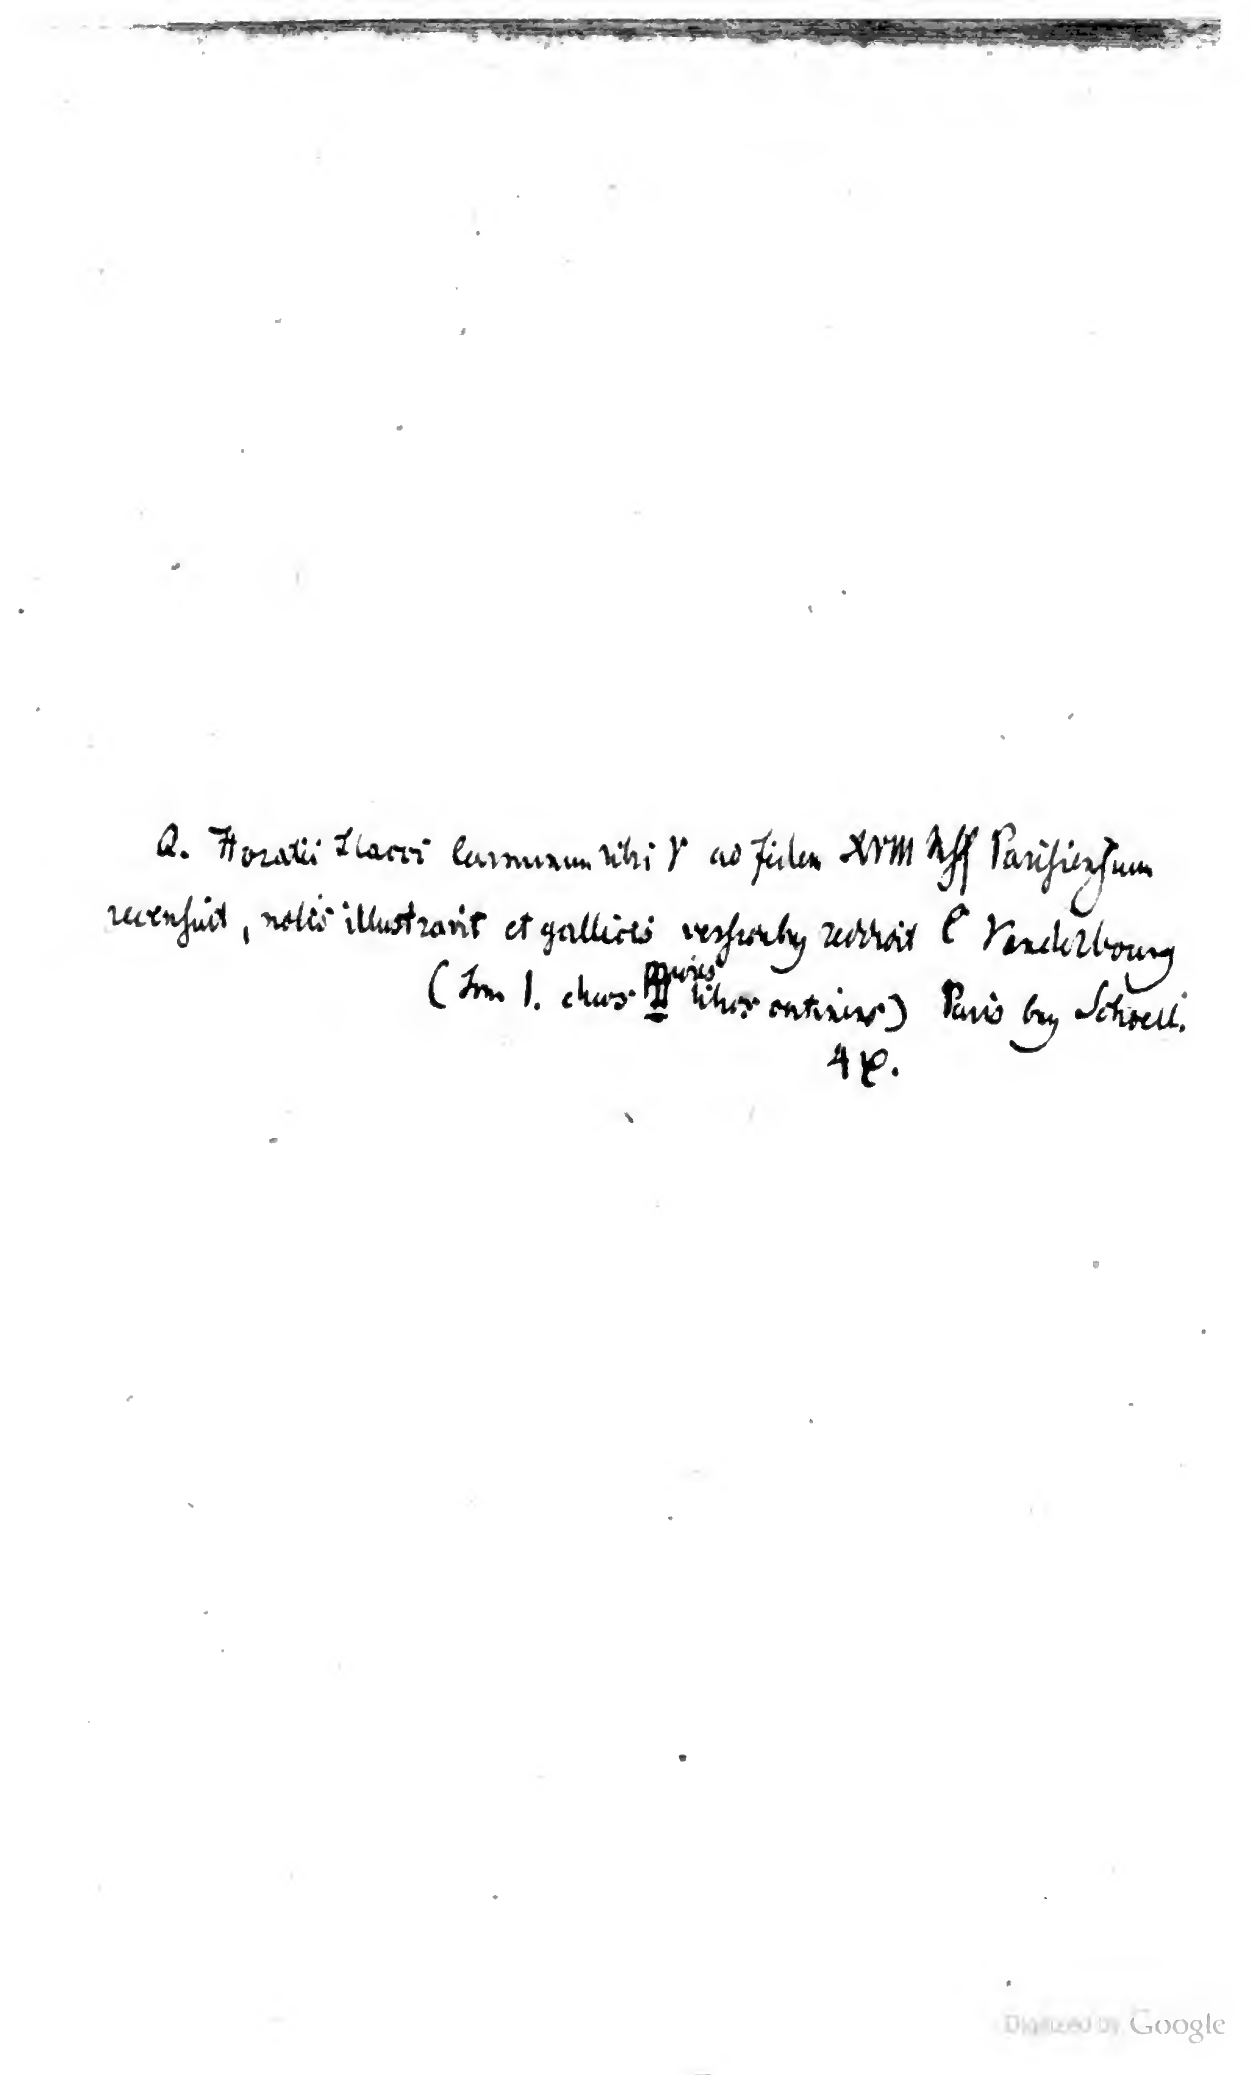 Q. Horatii Flacci Carminum libri V ad fidem XVIII Mſſ Pariſienſium
recenſuit, notis illustravit et gallicis verſionby reddidit C Vanderbourg
(Tom I. duos priores libros continens) Paris bey Schoell.
4
Digitized by Google